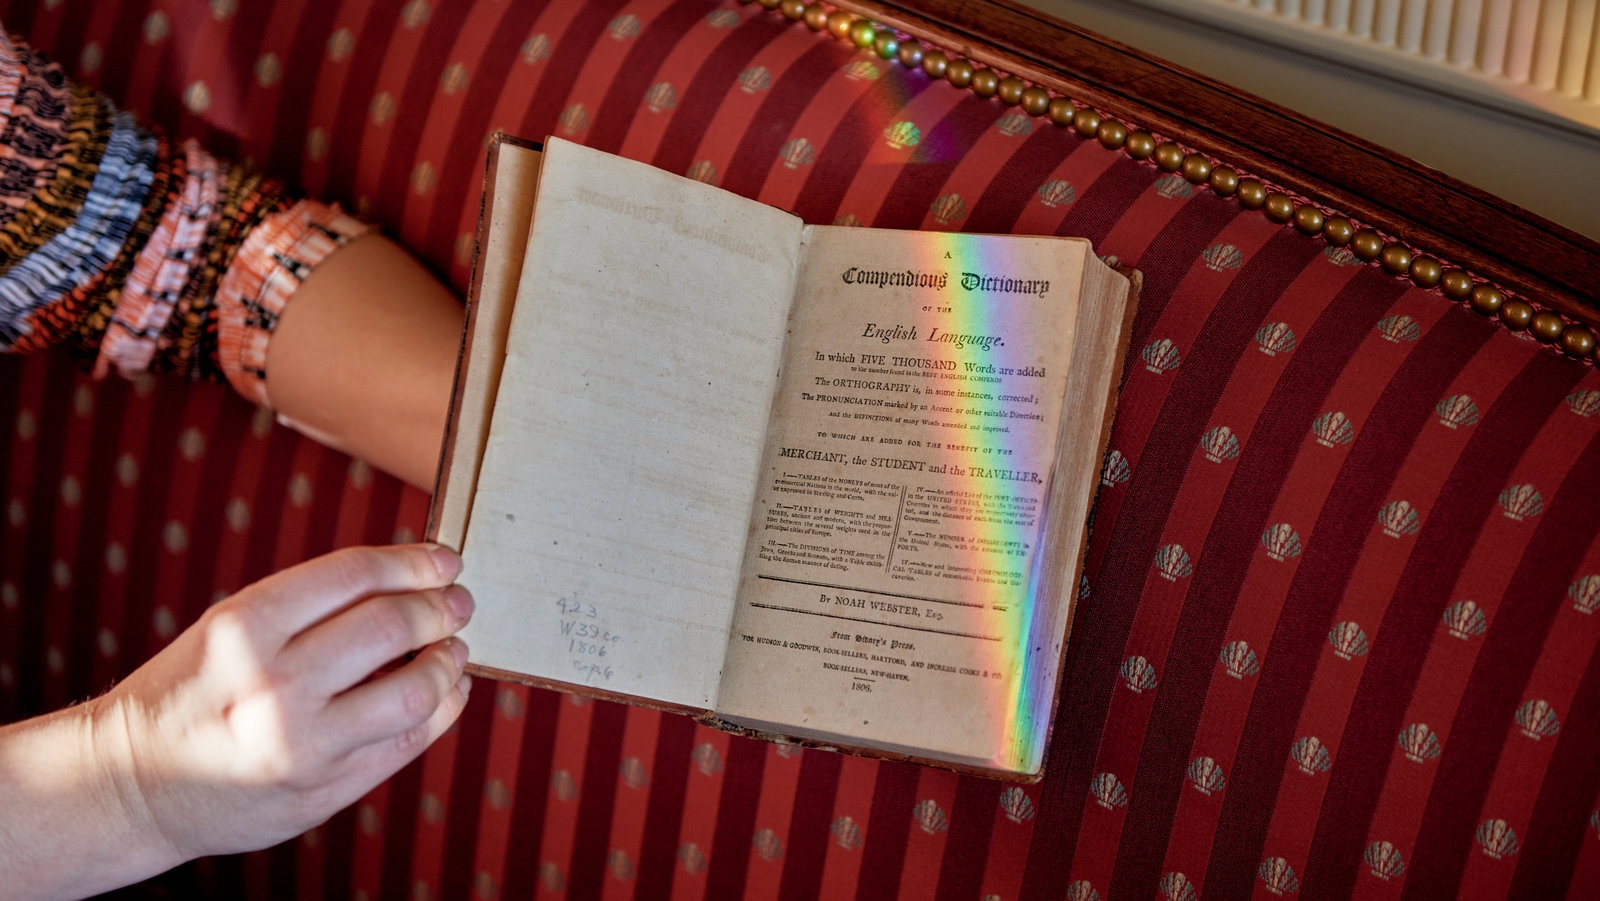 423
W39co
1806
cop6
A
Compendious Dictionary
OF THE
English Language.
In which FIVE THOUSAND Words are added
to the number found in the BEST ENGLISH COMPENDS
The ORTHOGRAPHY is, in some instances, corrected;
The PRONUNCIATION marked by an Accent or other suitable Direction;
And the DEFINITIONS of many Words amended and improved.
TO WHICH ARE ADDED FOR THE BENEFIT OF THE
MERCHANT, the STUDENT and the TRAVELLER,
I.—TABLES of the MONEYS of most of the
commercial Nations in the world, with the val-
ue expressed in Sterling and Cents.
II.—TABLES of WEIGHTS and MEA-
SURES, ancient and modern, with the propor-
tion between the several weights used in the
principal cities of Europe.
III.—The DIVISIONS of TIME among the
Jews, Greeks and Romans, with a Table exhib-
iting the Roman manner of dating.
IV.—An official List of the POST-OFFICES
in the UNITED STATES, with the States and
Counties in which they are respectively situa-
ted, and the distance of each from the seat of
Government.
V.—The NUMBER of INHABITANTS in
the United States, with the amount of EX-
PORTS.
IV.—New and interesting CHRONOLOGI-
CAL TABLES of remarkable Events and Dis-
coveries.
By NOAH WEBSTER, Esq.
From Sidney's Press.
FOR HUDSON & GOODWIN, BOOK-SELLERS, HARTFORD, AND INCREASE COOKE & CO.
BOOK-SELLERS, NEW-HAVEN.
1806.